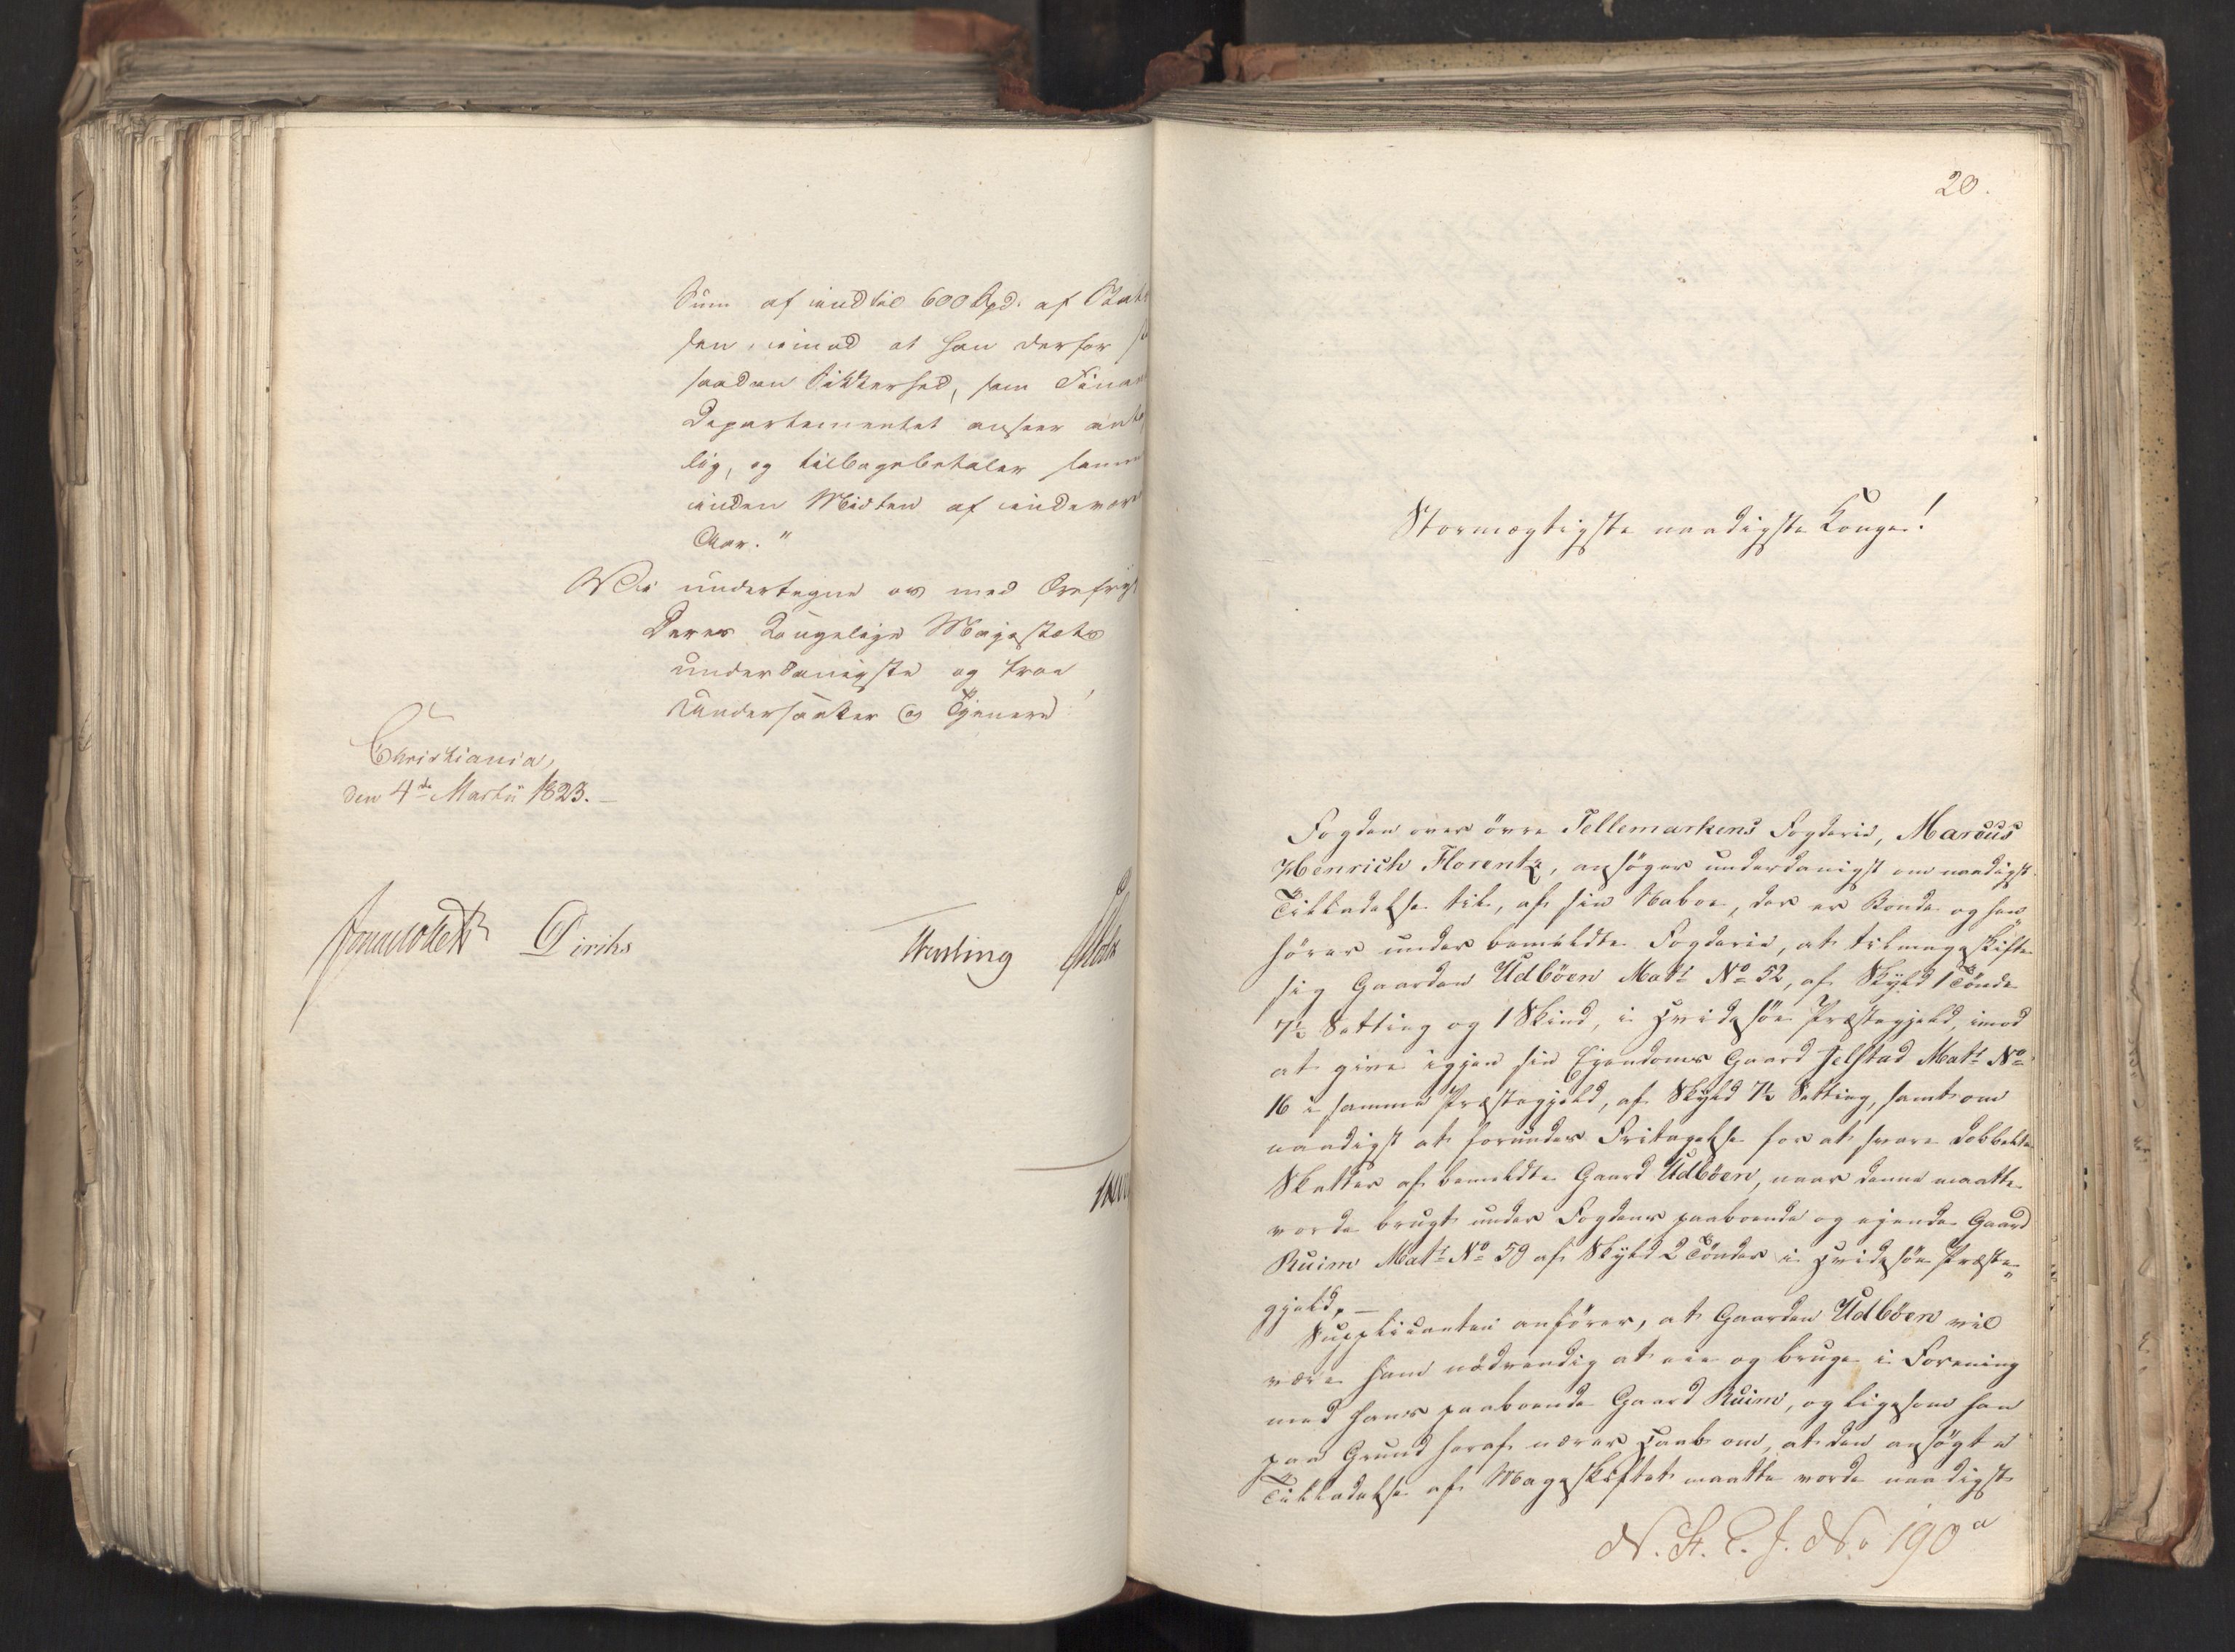 Sum af indtil 600 Spd. af Stats
sen, imod at han derfor
saadan Sikkerhed, som Finan
Departementet anseer
lig, og tilbagebetaler samme
inden Midten af indevær
Aar."
Vi undertegne os med Ærefrygt
Deres Kongelige Majestæts
underdanigste og troe
Undersaatter og Tjenere
Christiania,
den 4de Martii 1823.
Sommerhielm Diriks
Treschow
20.
Stormægtigste naadigste Konge!
Fogden over övre Tellemarkens Fogderie, Marcus
Henrich Florentz, ansöger underdanigst om naadigst
Tilladelse til, af sin Naboe, der er Bonde og hen
hörer under bemeldte Fogderie, at tilmageskifte
sig Gaarden Udböen Matr No 52, af Skyld 1 Tönde
7½ Setting og 1 Skind, i Hvidesöe Præstegjeld, imod
at give igjen sin Ejendoms Gaard Jelstad Matr No
16 i samme Præstegjeld, af Skyld 7½ Setting, samt om
naadigst at forundes Fritagelse for at svare dobbelte
Skatter af bemeldte Gaard Udböen, naar denne maatte
vorde brugt under Fogdens paaboende og ejende Gaard
Ruim Matr No 59 af Skyld 2 Tönder i Hvidesöe Præste-
gjeld. –
Supplicanten anförer, at Gaarden Udböen vil
være ham nödvendig at eie og bruge i Forening
med hans paaboende Gaard Ruim, og ligesom han
paa Grund heraf nærer Haab om, at den ansögte
Tilladelse af Mageskiftet maatte vorde naadigst
N. St. C. J. No 190a